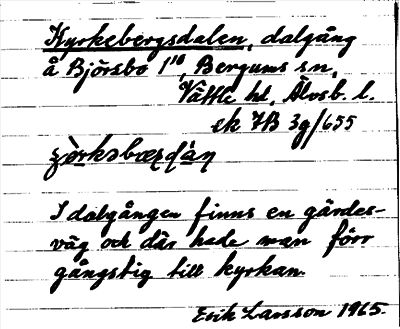 Kyrkebergsdalen, dalgång
å Björsbo 1¹⁰, Bergums sn,
Vättle hd, Älvsb. l.
ek 7B 3g/655
I dalgången finns en gärdes-
väg och där hade man förr
gångstig till kyrkan.
Erik Larsson 1965.